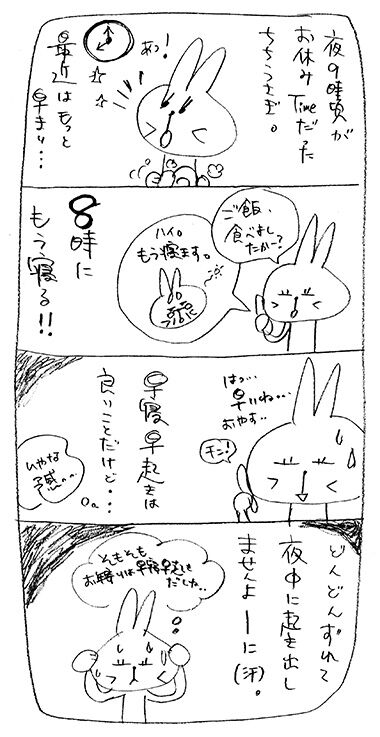 夜9時頃が
お休みTimeだった
ちちうさぎ。
あっ!
最近はもっと
早まり…
ご飯、
食べまし
たかー?
ハイ。
もう寝ます。
8時に
もう寝る!!
はっ…
早いね…
おやす…
早寝早起きは
良いことだけど…。
いやな
予感。。
どんどんずれて
夜中に起き出し
ませんよーに(汗)。
そもそも
お年寄りは早寝早起き
だしな..